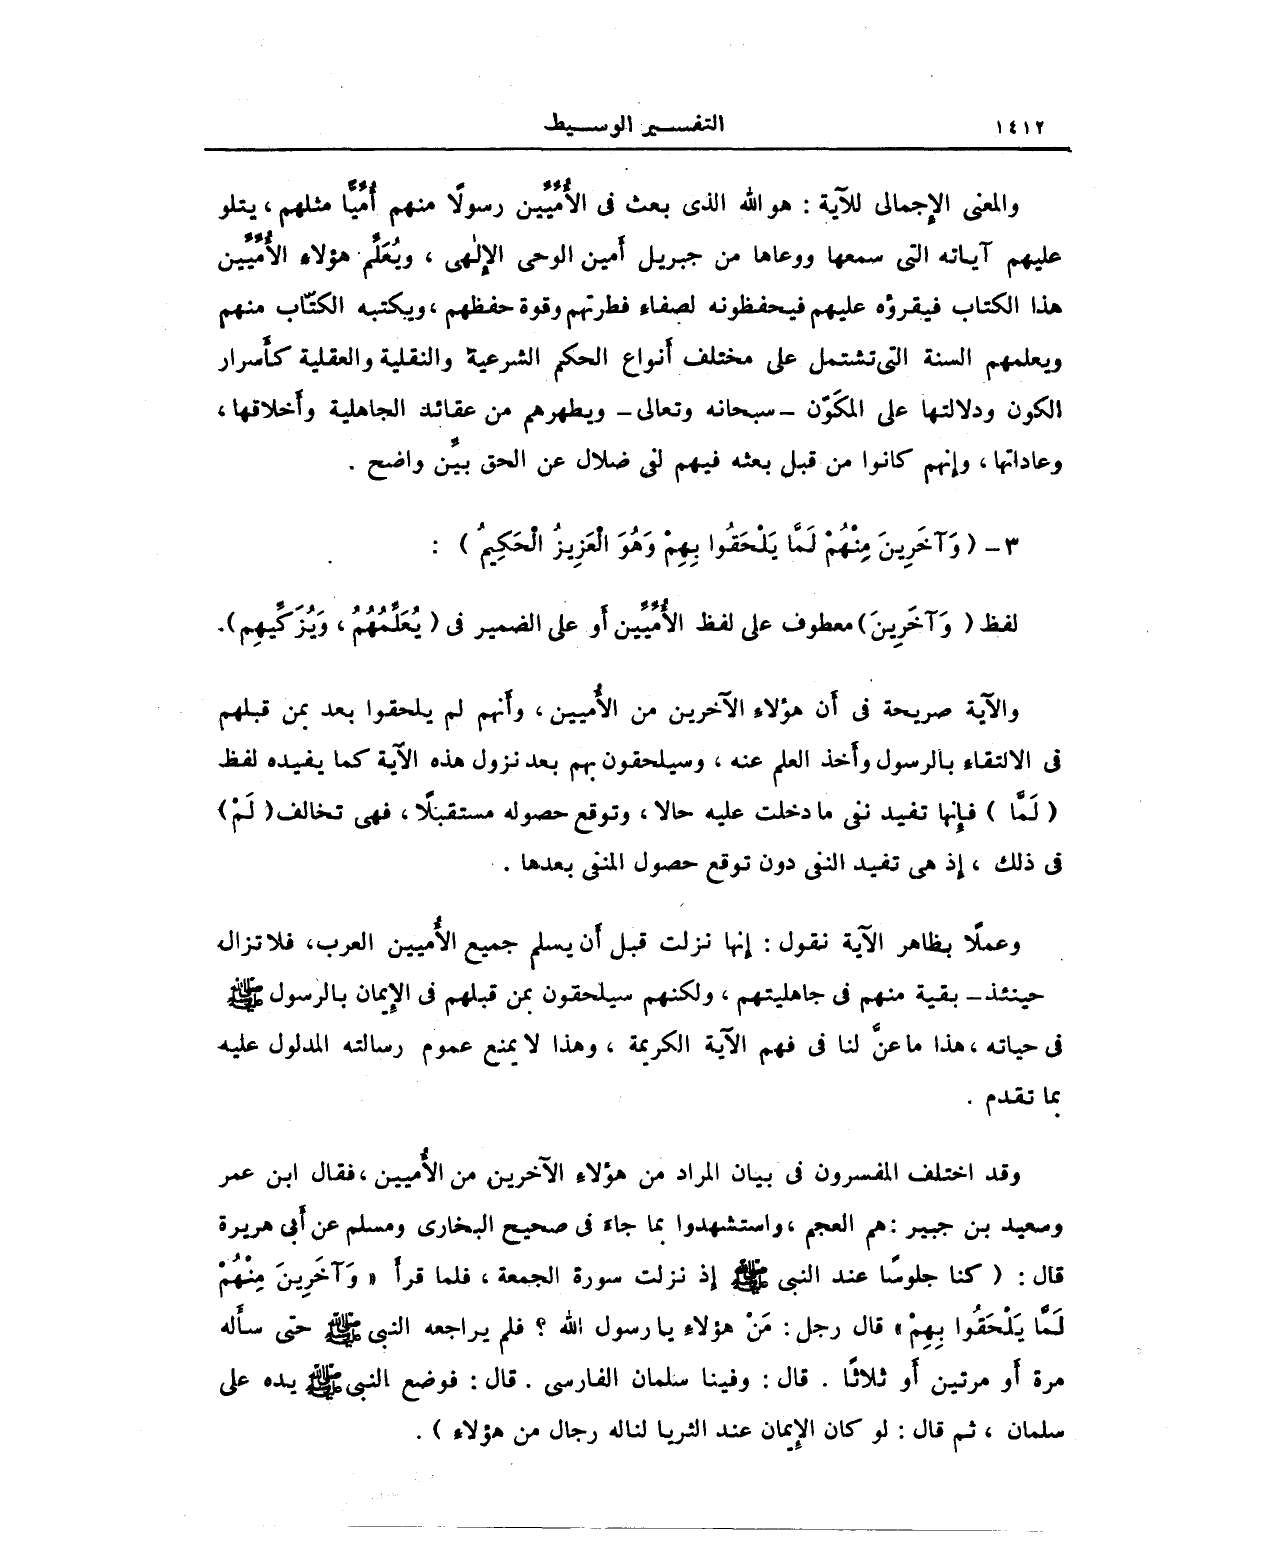 ١٤١٢
التفسير الوسيط
والمعنى الإجمالى للآية : هو الله الذى بعث فى الأُمِّيِّين رسولًا منهم أُمِّيًّا مثلهم ، يتلو
عليهم آياته التى سمعها ووعاها من جبريل أمين الوحى الإلٰهى ، ويُعَلِّم هؤلاء الأُمِّيِّين
هذا الكتاب فيقرؤه عليهم فيحفظونه لصفاء فطرتهم وقوة حفظهم ، ويكتبه الكتّاب منهم
ويعلمهم السنة التى تشتمل على مختلف أنواع الحكم الشرعية والنقلية والعقلية كأسرار
الكون ودلالتها على المكَوّن - سبحانه وتعالى - ويطهرهم من عقائد الجاهلية وأخلاقها ،
وعاداتها ، وإنهم كانوا من قبل بعثه فيهم لفى ضلال عن الحق بيِّن واضح .
٣ - ( وَآخَرِينَ مِنْهُمْ لَمَّا يَلْحَقُوا بِهِمْ وَهُوَ الْعَزِيزُ الْحَكِيمُ ) :
لفظ ( وَآخَرِينَ ) معطوف على لفظ الأُمِّيِّين أو على الضمير فى ( يُعَلِّمُهُمُ ، وَيُزَكِّيهِم ) .
والآية صريحة فى أن هؤلاء الآخرين من الأُميين ، وأنهم لم يلحقوا بعد بمن قبلهم
فى الالتقاء بالرسول وأخذ العلم عنه ، وسيلحقون بهم بعد نزول هذه الآية كما يفيده لفظ
( لَمَّا ) فإنها تفيد نفى ما دخلت عليه حالا ، وتوقع حصوله مستقبلًا ، فهى تخالف ( لَمْ )
فى ذلك ، إذ هى تفيد النفى دون توقع حصول المنفى بعدها .
وعملًا بظاهر الآية نقول : إنها نزلت قبل أن يسلم جميع الأُميين العرب ، فلا تزال
حينئذ - بقية منهم فى جاهليتهم ، ولكنهم سيلحقون بمن قبلهم فى الإيمان بالرسول ﷺ
فى حياته ، هذا ما عنَّ لنا فى فهم الآية الكريمة ، وهذا لا يمنع عموم رسالته المدلول عليه
بما تقدم .
وقد اختلف المفسرون فى بيان المراد من هؤلاء الآخرين من الأُميين ، فقال ابن عمر
وسعيد بن جبير : هم العجم ، واستشهدوا بما جاء فى صحيح البخارى ومسلم عن أبى هريرة
قال : ( كنا جلوسًا عند النبى ﷺ إذ نزلت سورة الجمعة ، فلما قرأ « وَآخَرِينَ مِنْهُمْ
لَمَّا يَلْحَقُوا بِهِمْ » قال رجل : مَنْ هؤلاء يا رسول الله ؟ فلم يراجعه النبى ﷺ حتى سأله
مرة أو مرتين أو ثلاثًا . قال : وفينا سلمان الفارسى . قال : فوضع النبى ﷺ يده على
سلمان ، ثم قال : لو كان الإيمان عند الثريا لناله رجال من هؤلاء ) .